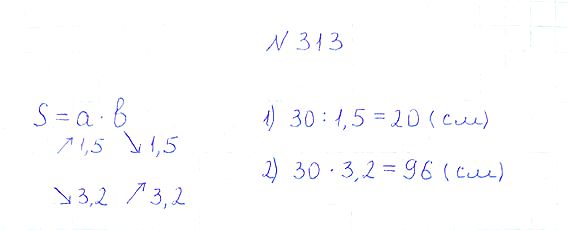 N 313
S = a · b
↗1,5 ↘1,5
↘3,2 ↗3,2
1) 30 : 1,5 = 20 (см)
2) 30 · 3,2 = 96 (см)